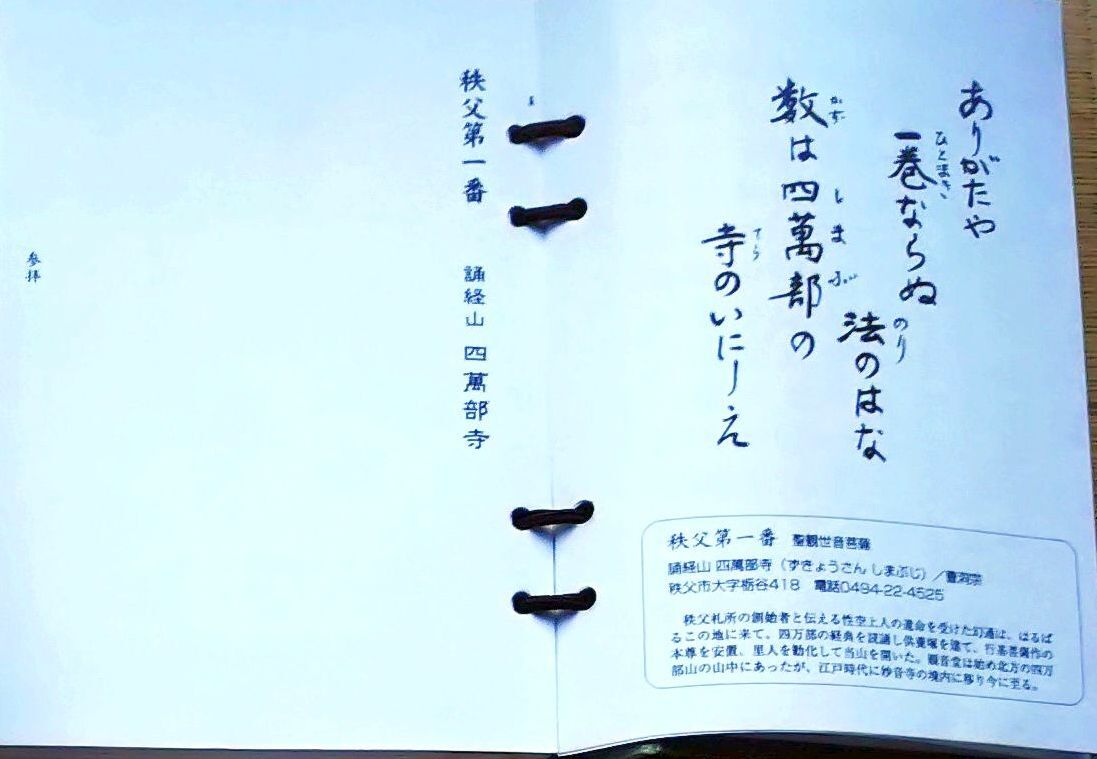 ありがたや
一巻ならぬ
ひとまき
法のはな
のり
数は四萬部の
かず しまぶ
寺のいにしえ
てら
秩父第一番 聖観世音菩薩
誦経山 四萬部寺（ずきょうさん しまぶじ）／曹洞宗
秩父市大字栃谷418 電話0494-22-4525
秩父札所の創始者と伝える性空上人の遺命を受けた幻通は、はるば
るこの地に来て、四万部の経典を読誦し供養塚を建て、行基菩薩作の
本尊を安置、里人を勧化して当山を開いた。観音堂は始め北方の四万
部山の山中にあったが、江戸時代に妙音寺の境内に移り今に至る。
秩父第一番 誦経山 四萬部寺
参拝